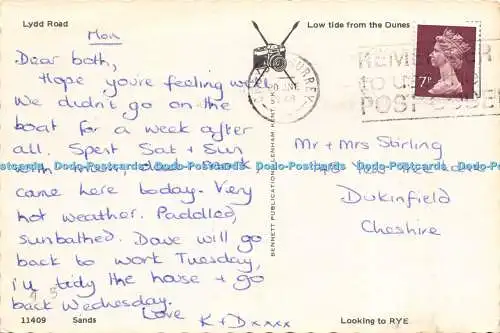 Lydd Road
Low tide from the Dunes
Mon
Dear both,
Hope you're feeling well
We didn't go on the
boat for a week after
all. Spent Sat + Sun
with
came here today. Very
hot weather. Paddled,
sunbathed. Dave will go
back to work Tuesday,
I'll tidy the house + go
back Wednesday.
Love
K + D xxxx
11409 Sands
BENNETT PUBLICATIONS, LENHAM, KENT
SURREY
JNE
REMEMBER
TO USE
POST CODE
7P
Mr + Mrs Stirling
Dukinfield
Cheshire
Looking to RYE
Dodo-Postcards Dodo-Postcards Dodo-Postcards Dodo-Postcards